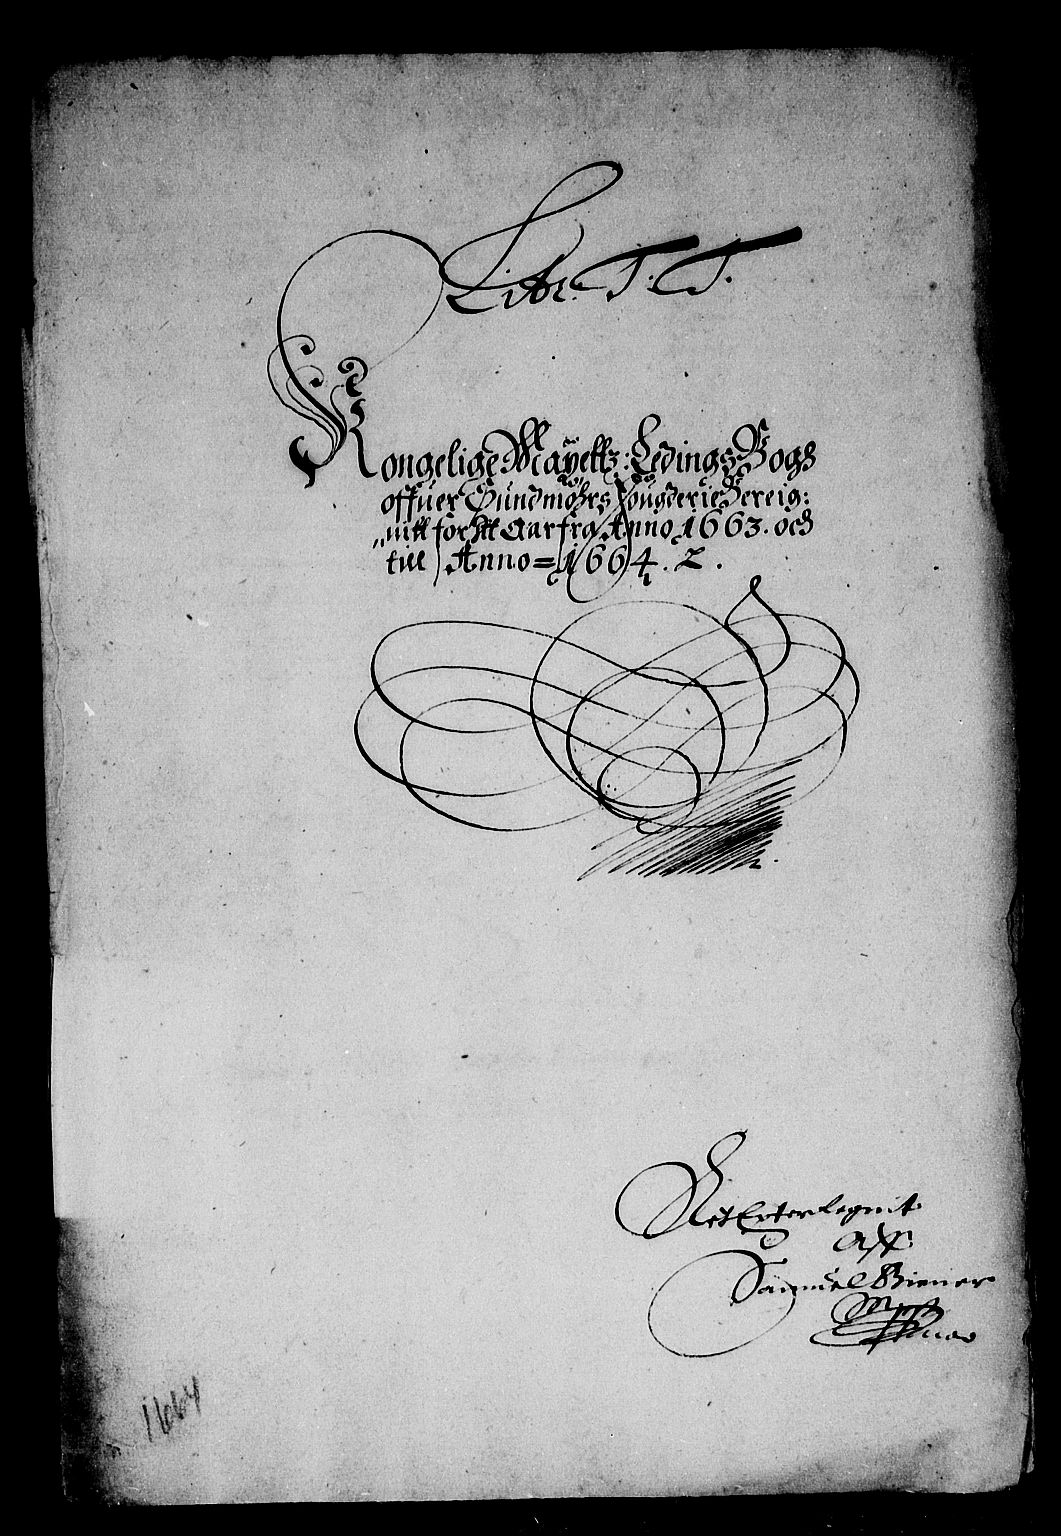 Litr. T. T.
Kongelige Mayettz: Ledings Bogs
offuer Sündmöhrs fougderie Bereig:
nitt for Itt Aar fra Anno 1663. och
till Anno = 1664.
Ret Exter legnit
aff
Samuel Biener
Mpp
1664